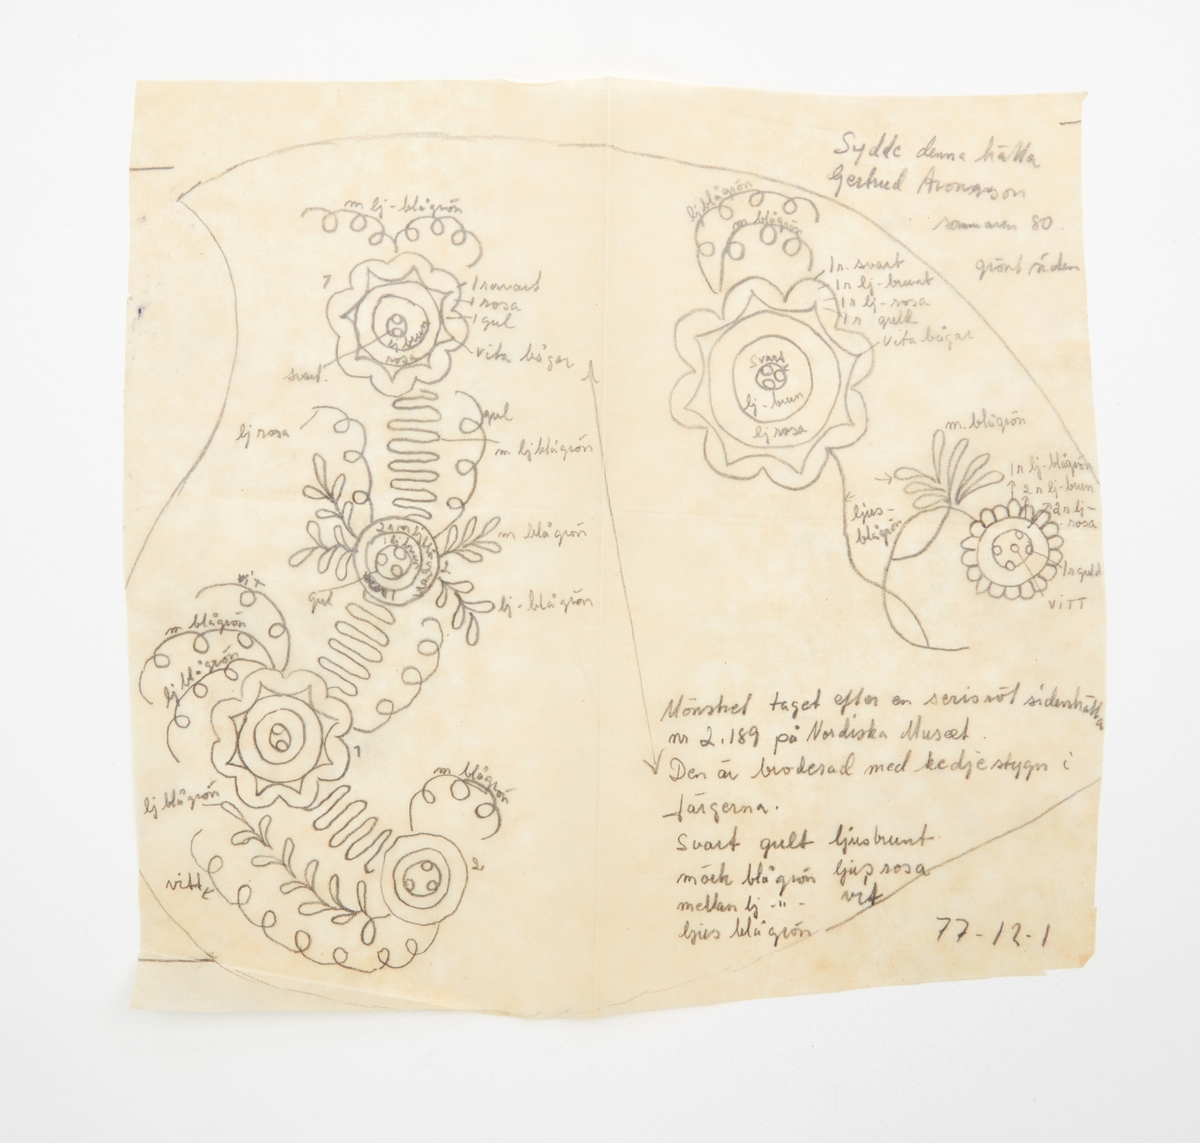 Sydde denna hätta
Gertrud Aronsson
sommaren 80.
grönt siden
m lj-blågrön
7
1 r svart
1 rosa
1 gul
vita bågar
lj brun
rosa
svart.
lj blågrön
m blågrön
1 r. svart
1 r lj-brunt
1 r lj-rosa
1 r gult
vita bågar
svart
lj-brun
lj rosa
lj rosa
gul
m lj blågrön
m blågrön
lj-blågrön
2
lj brun
gul
m. blågrön
1 r lj-blågrön
2 r lj-brun
2 r lj-
rosa
1 r guld
VITT
ljus-
blågrön
vit
m blågrön
lj blågrön
1
lj blågrön
vitt
m blågrön
2.
Mönstret taget efter en serisröt sidenhätta
nr 2.189 på Nordiska Muséet.
Den är broderad med kedjestygn i
färgerna.
Svart gult ljusbrunt
mörk blågrön ljusrosa
mellan lj -"- vit
ljus blågrön
77-12-1